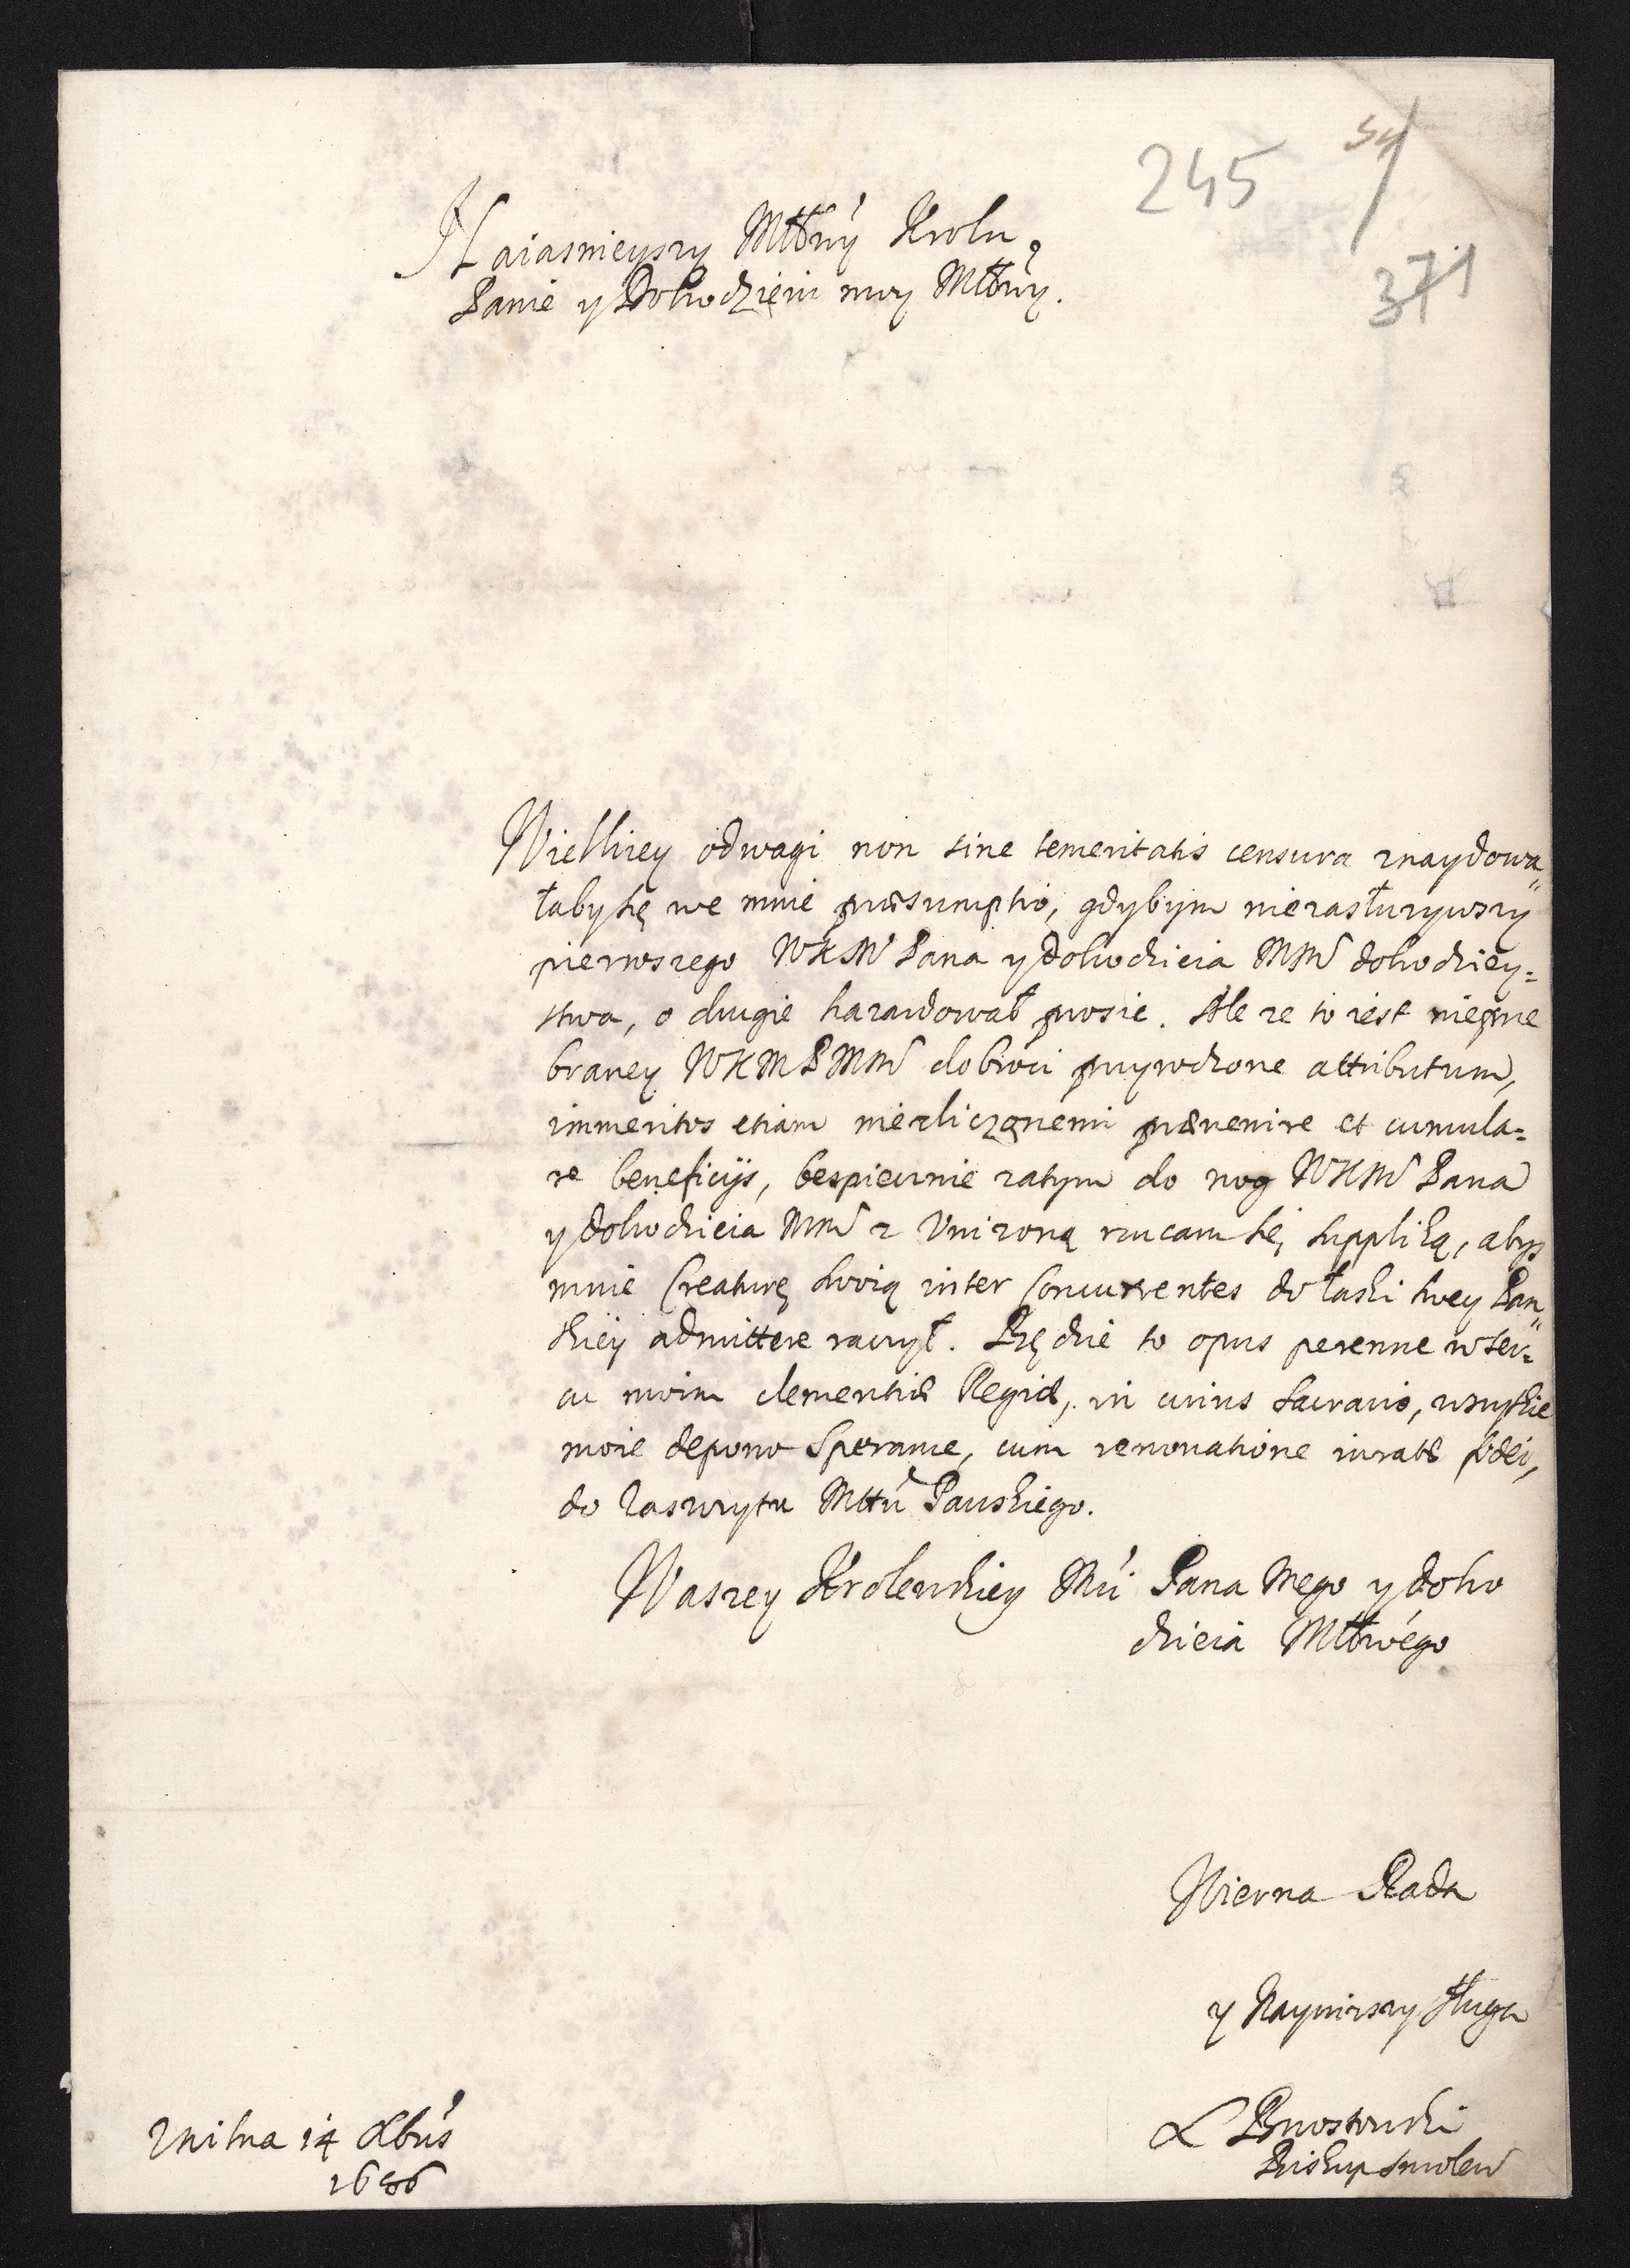 245 54
371
Naiasnieyszy Mtwỳ Krolu,
Panie y Dobrodzieiu moy Mtwỳ.
Wielkiey odwagi non sine temeritatis censura znaydowa„
łabysię we mnie præsumptio, gdybym niezasłuzywszy
pierwszego WKM Pana y Dobrodzieia MM dobrodziey=
stwa, o drugie hazardował prosic. Ale ze to iest nieprze
braney WKMPMM dobroci przyrodzone attributum,
immeritos etiam niezliczonemi prævenire et cumula=
re beneficijs, bespiecznie zatym do nog WKM Pana
y Dobrodzieia MM z Vnizoną rzucam się suppliką, abys
mnie Creaturę swoią inter Concurrentes do łaski swey Pan„
skiey admittere raczył. Będzie to opus perenne w ser=
cu moim clementiæ Regiæ, in cuius sacrario, wszytkie
moie depono Sperance, cum renovatione iuratæ fidei,
do Zaszczytu Mtti Panskiego.
Waszey Krolewskiey Mci Pana Mego y Dobro
dzieia Mtwego
Wierna Rada
y Naynizszy sługa
Brzostowski
Biskup Smolen
Wilna 14 Xbris
1686